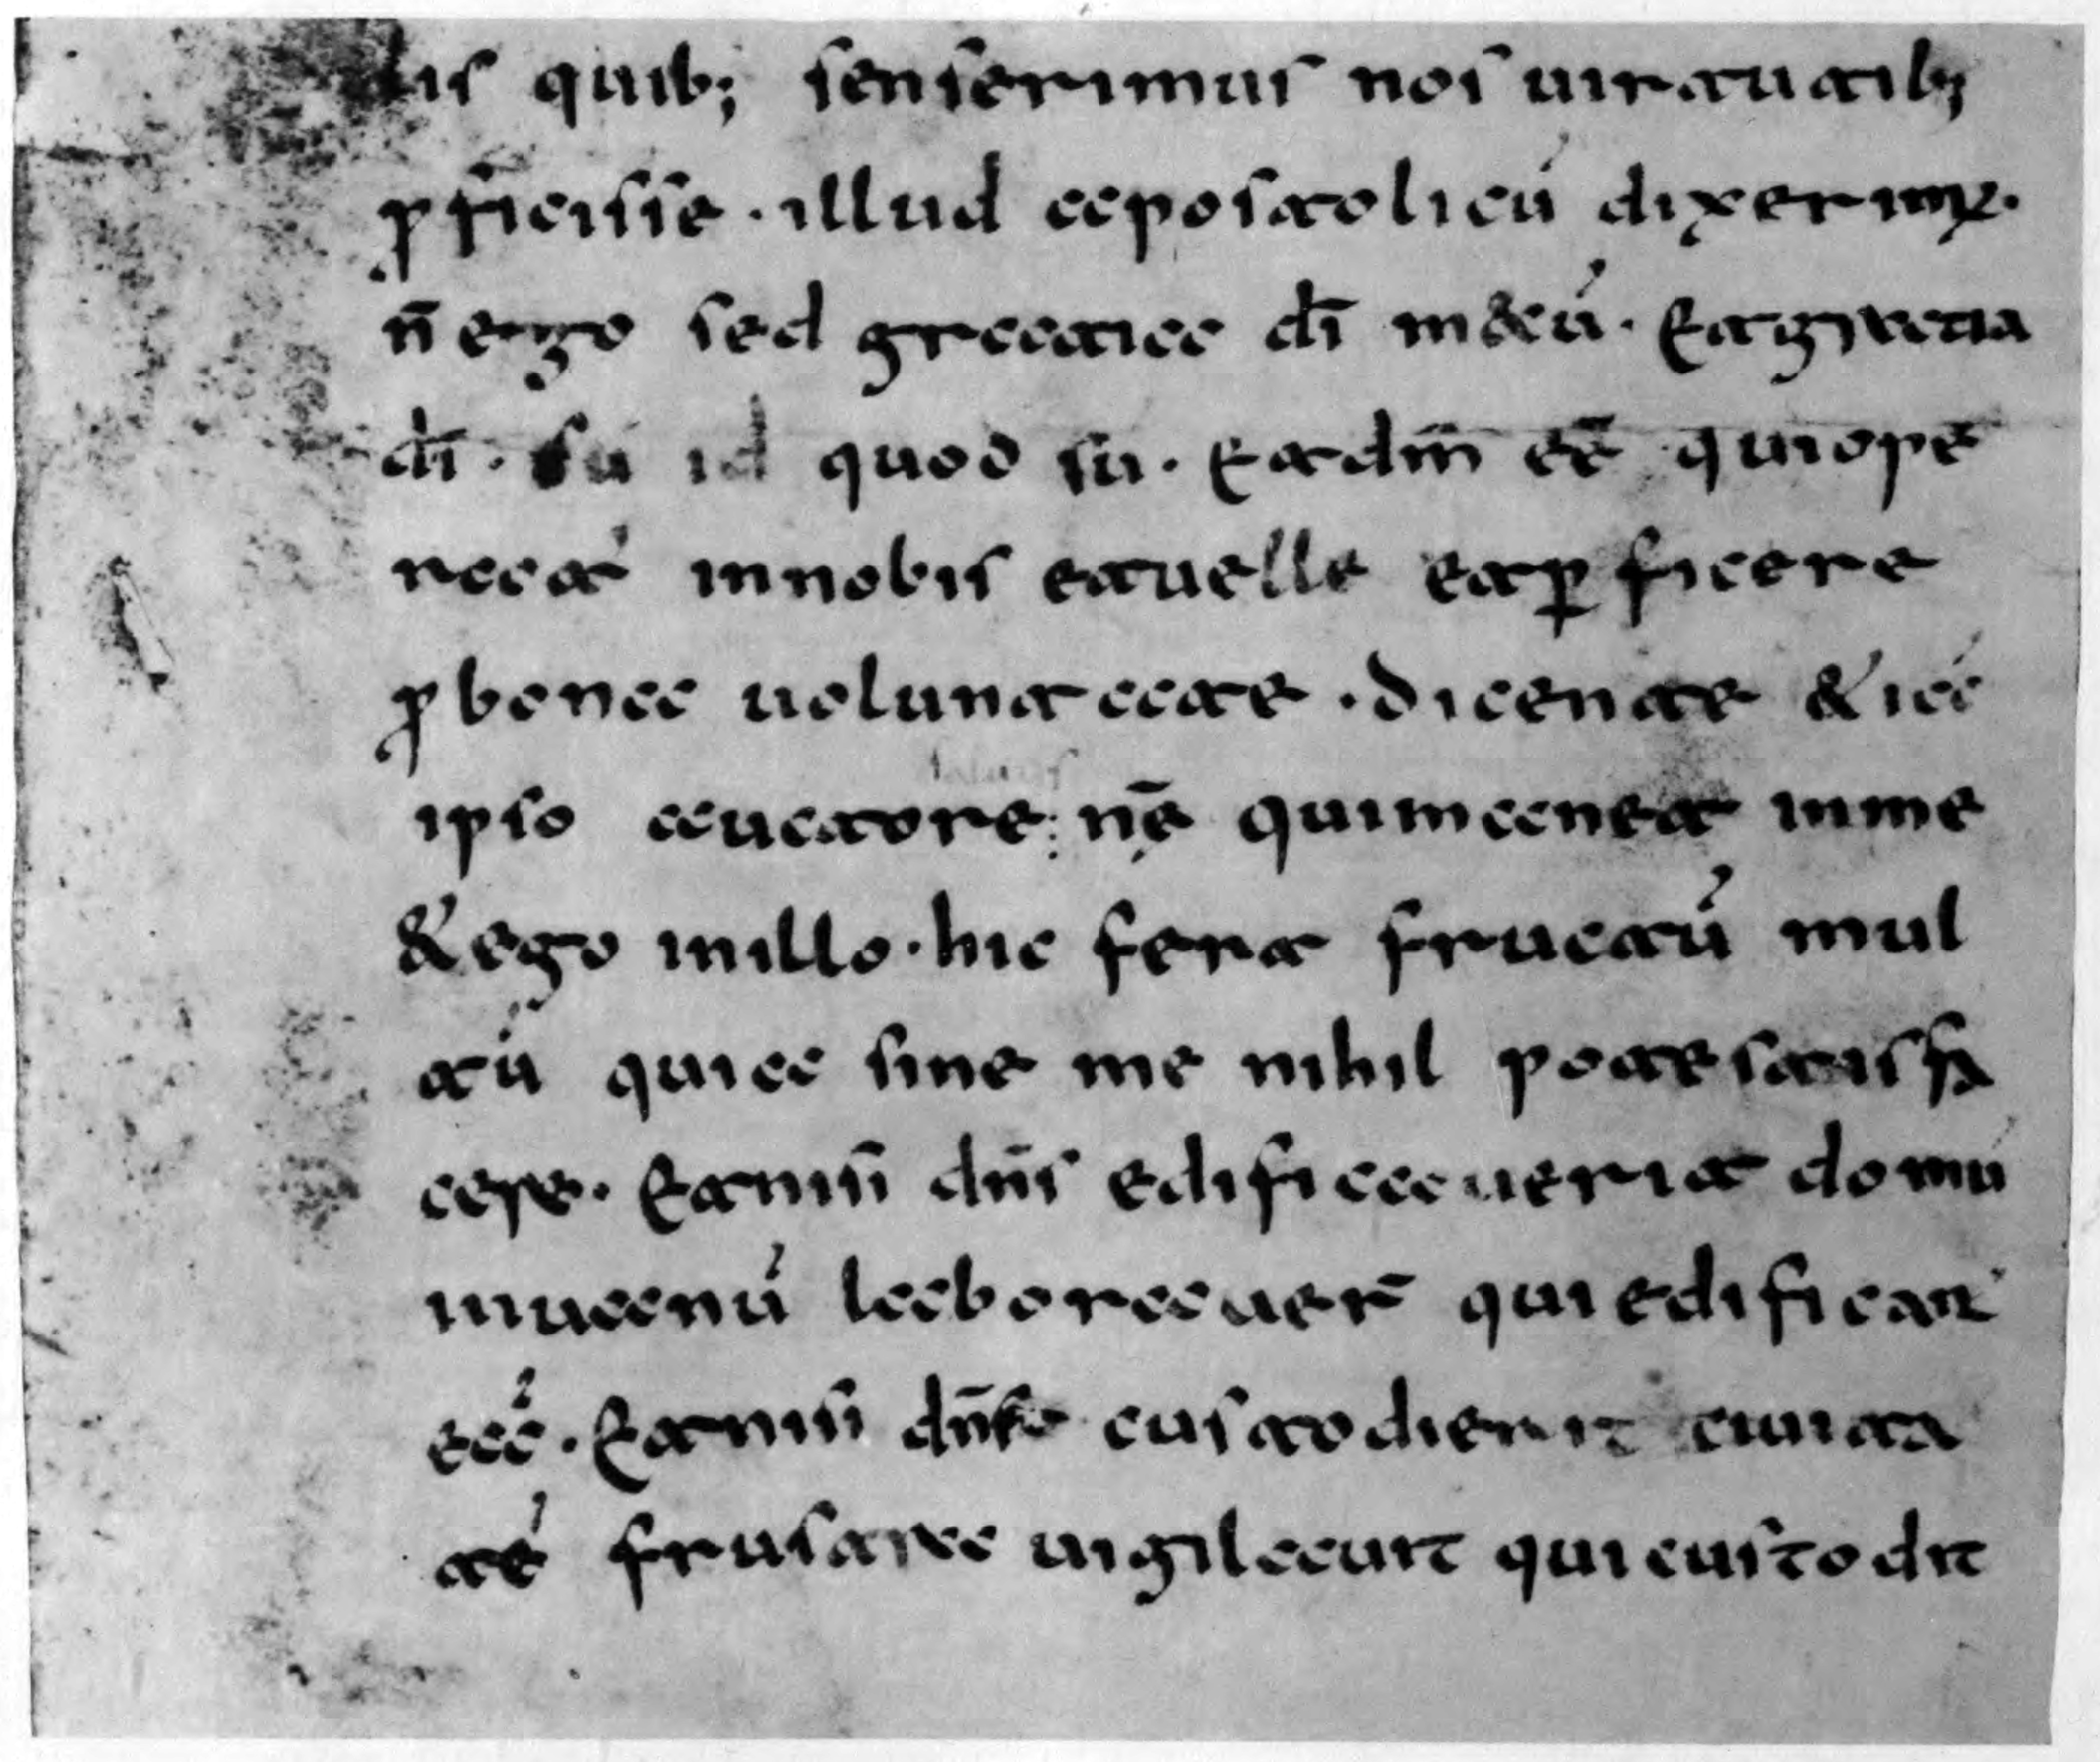 bis quib; senserimus nos uirtutib;
ꝓficisse · illud apostolicū dixerimꝰ·
n̄ ego sed gratia dī mecū · Et gratia
dī · sū id quod sū · Et ad̄m eē qui ope
ratˀ in nobis et uelle et ꝑficere
ꝓ bona uoluntate · dicente & iā
ipso auctore : salutis nr̄ę qui manet in me
& ego in illo · hic fert fructū mul
tū quia sine me nihil potestis fa
cere · Et nisi dn̄s edificauerit domū
in uanū laborauer̄ qui edificant
eā · Et nisi dn̄s custodierit ciuita
tē frustra uigilauit qui custodit